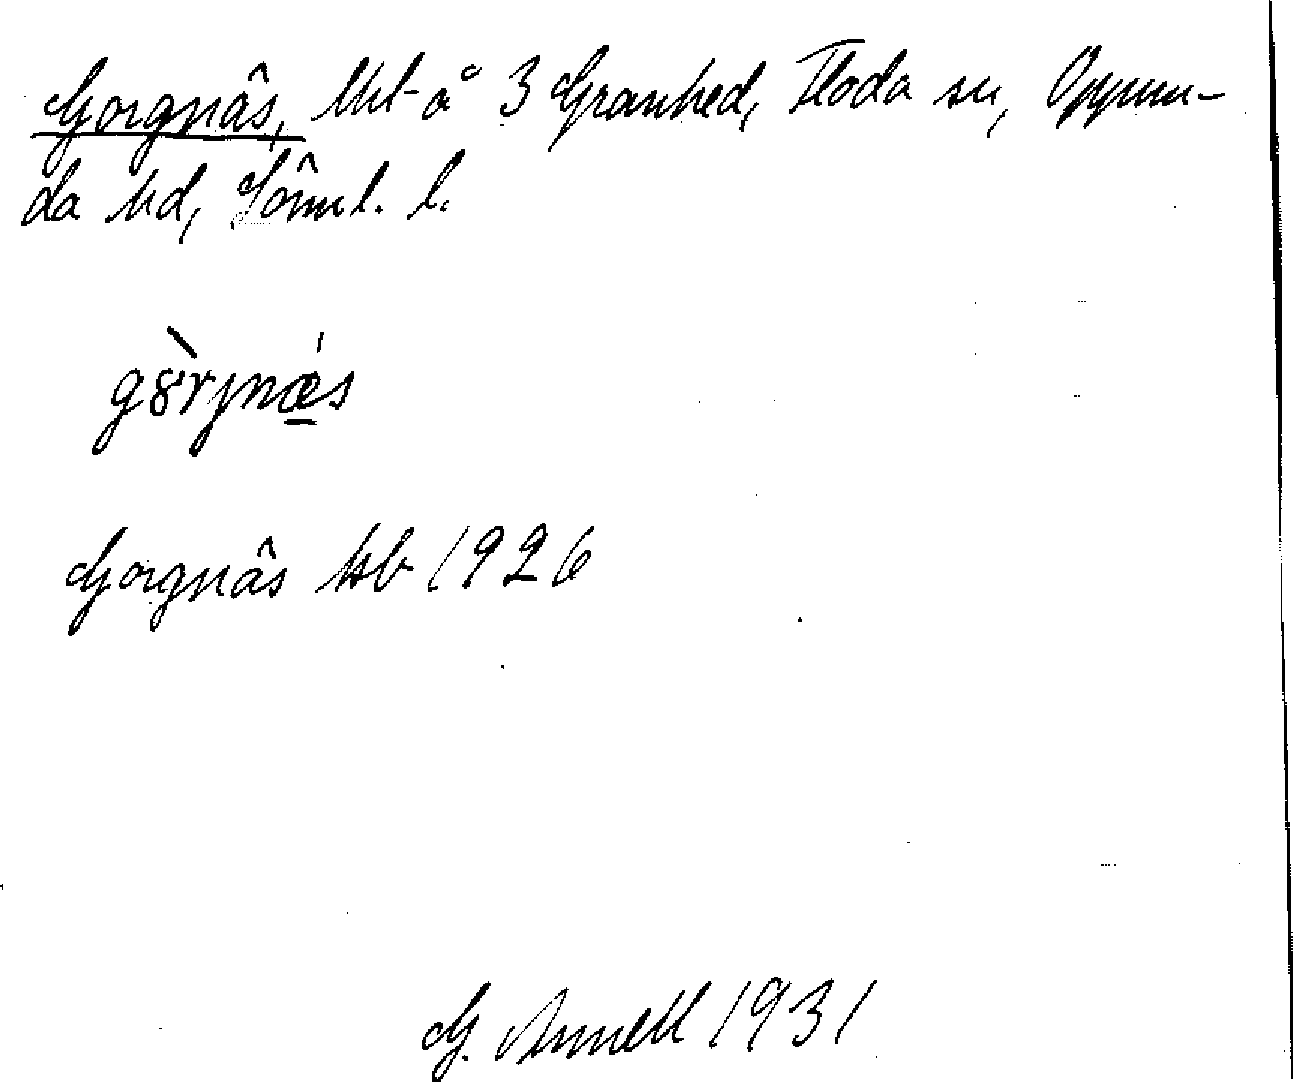 Gorgnäs, Uht å 3 Granhed, Floda sn, Oppun-
da hd, Söml. l.
gȣ̀rjnæ̲s
Gorgnäs hsb 1926
G. Annell 1931